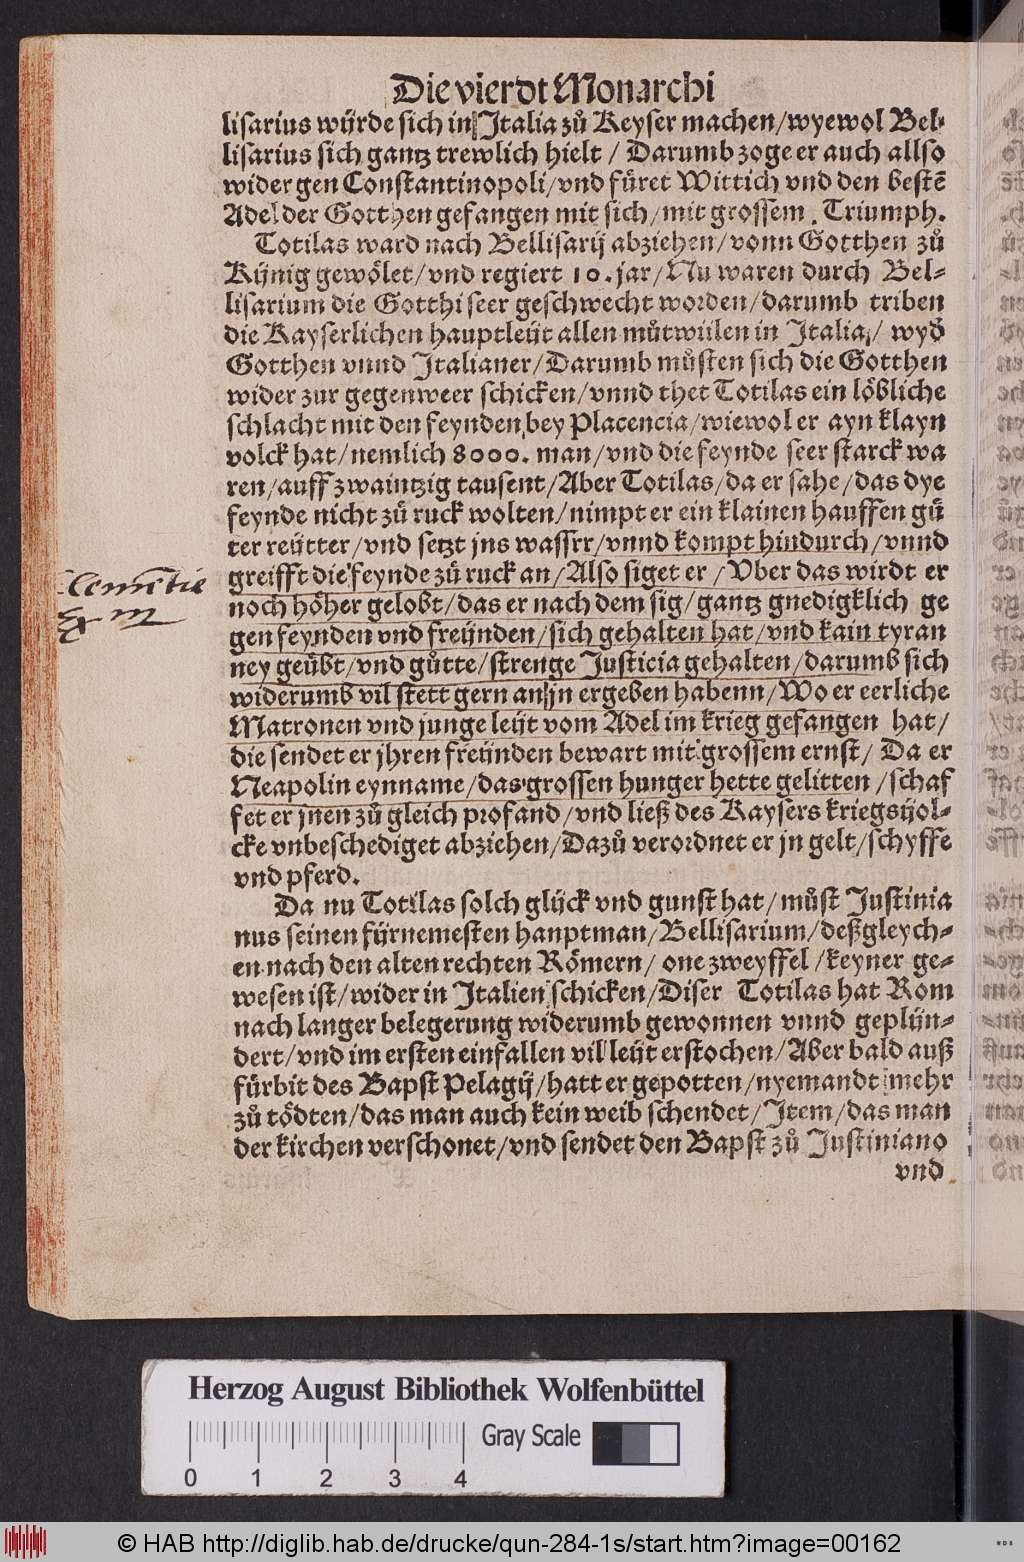 Die vierdt Monarchi
lisarius würde sich in Italia zů Keyser machen/wyewol Bel-
lisarius sich gantz trewlich hielt / Darumb zoge er auch allso
wider gen Constantinopoli/vnd füret Wittich vnd den bestē
Adel der Gotthen gefangen mit sich/mit grossem. Triumph.
Totilas ward nach Bellisarij abziehen/vonn Gotthen zů
Künig gewölet/vnd regiert 10. jar/Nu waren durch Bel-
lisarium die Gotthi seer geschwecht worden/darumb triben
die Kayserlichen hauptleüt allen můtwillen in Italia/ wyd̄
Gotthen vnnd Italianer/Darumb můsten sich die Gotthen
wider zur gegenweer schicken/vnnd thet Totilas ein löbliche
schlacht mit den feynden bey Placencia/wiewol er ayn klayn
volck hat/nemlich 8000. man/vnd die feynde seer starck wa
ren/auff zwaintzig tausent/Aber Totilas/da er sahe/das dye
feynde nicht zů ruck wolten/nimpt er ein klainen hauffen gů
ter reütter/vnd setzt jns wasser/vnnd kompt hindurch/vnnd
greifft die feynde zů ruck an/Also siget er/Vber das wirdt er
noch höher gelobt/das er nach dem sig/gantz gnedigklich ge
gen feynden vnd freünden/sich gehalten hat/vnd kain tyran
ney geübt/vnd gůtte/strenge Justicia gehalten/darumb sich
widerumb vil stett gern an jn ergeben habenn/Wo er eerliche
Matronen vnd junge leüt vom Adel im krieg gefangen hat/
die sendet er jhren freünden bewart mit grossem ernst/ Da er
Neapolin eynname/das grossen hunger hette gelitten/schaf
fet er jnen zů gleich profand/vnd ließ des Kaysers kriegsuol-
cke vnbeschediget abziehen/Dazů verordnet er jn gelt/schyffe
vnd pferd.
Da nu Totilas solch glück vnd gunst hat/můst Justinia
nus seinen fürnemesten hanptman/Bellisarium/deßgleych-
en nach den alten rechten Römern/ one zweyffel/keyner ge-
wesen ist/wider in Italien schicken/Diser Totilas hat Rom
nach langer belegerung widerumb gewonnen vnnd geplün-
dert/vnd im ersten einfallen vil leüt erstochen/Aber bald auß
fürbit des Bapst Pelagij/hatt er gepotten/nyemandt mehr
zů tödten/das man auch kein weib schendet/Item/das man
der kirchen verschonet/vnd sendet den Bapst zů Justiniano
vnd
Herzog August Bibliothek Wolfenbüttel
Gray Scale
0 1 2 3 4
© HAB http://diglib.hab.de/drucke/qun-284-1s/start.htm?image=00162